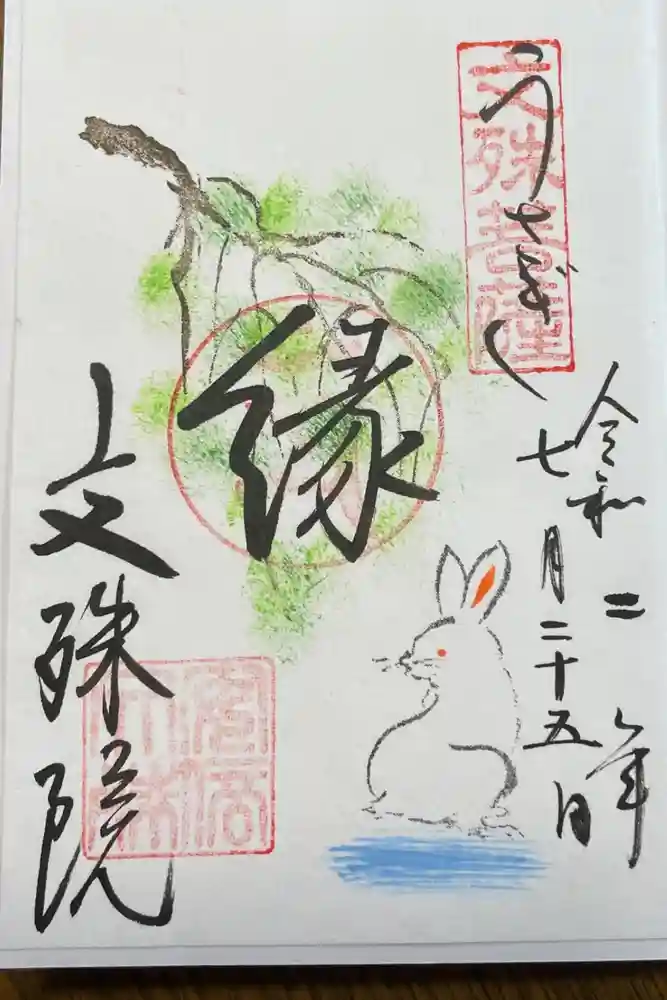 文殊菩薩
うさぎ
令和二年
七月二十五日
縁
文殊院